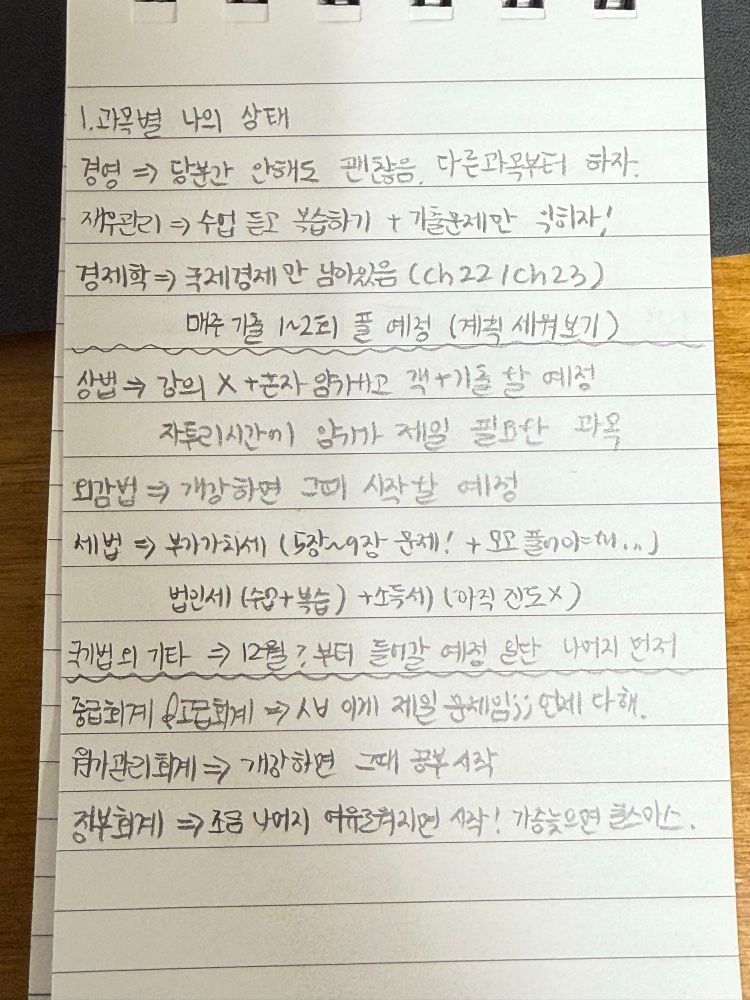 1. 과목별 나의 상태
경영 => 당분간 안해도 괜찮음. 다른과목부터 하자.
재무관리 => 수업 듣고 복습하기 + 기출문제만 익히자!
경제학 => 국제경제만 남아있음 (ch22 / ch23)
매주 기출 1~2회 풀 예정 (계획 세워보기)
상법 => 강의 X + 혼자 암기하고 객+기출 할 예정
자투리시간에 암기가 제일 필요한 과목
외감법 => 개강하면 그때 시작할 예정
세법 => 부가가치세 (5장~9장 문제! +
법인세 (수업+복습) + 소득세 (아직 진도X)
국기법 외 기타 => 12월?부터 들어갈 예정 일단 나머지 먼저
중급회계 & 고급회계 => 이게 제일 문제임;; 언제 다해.
원가관리회계 => 개강하면 그때 공부시작
정부회계 => 조금 나머지 여유로워지면 시작! 가능